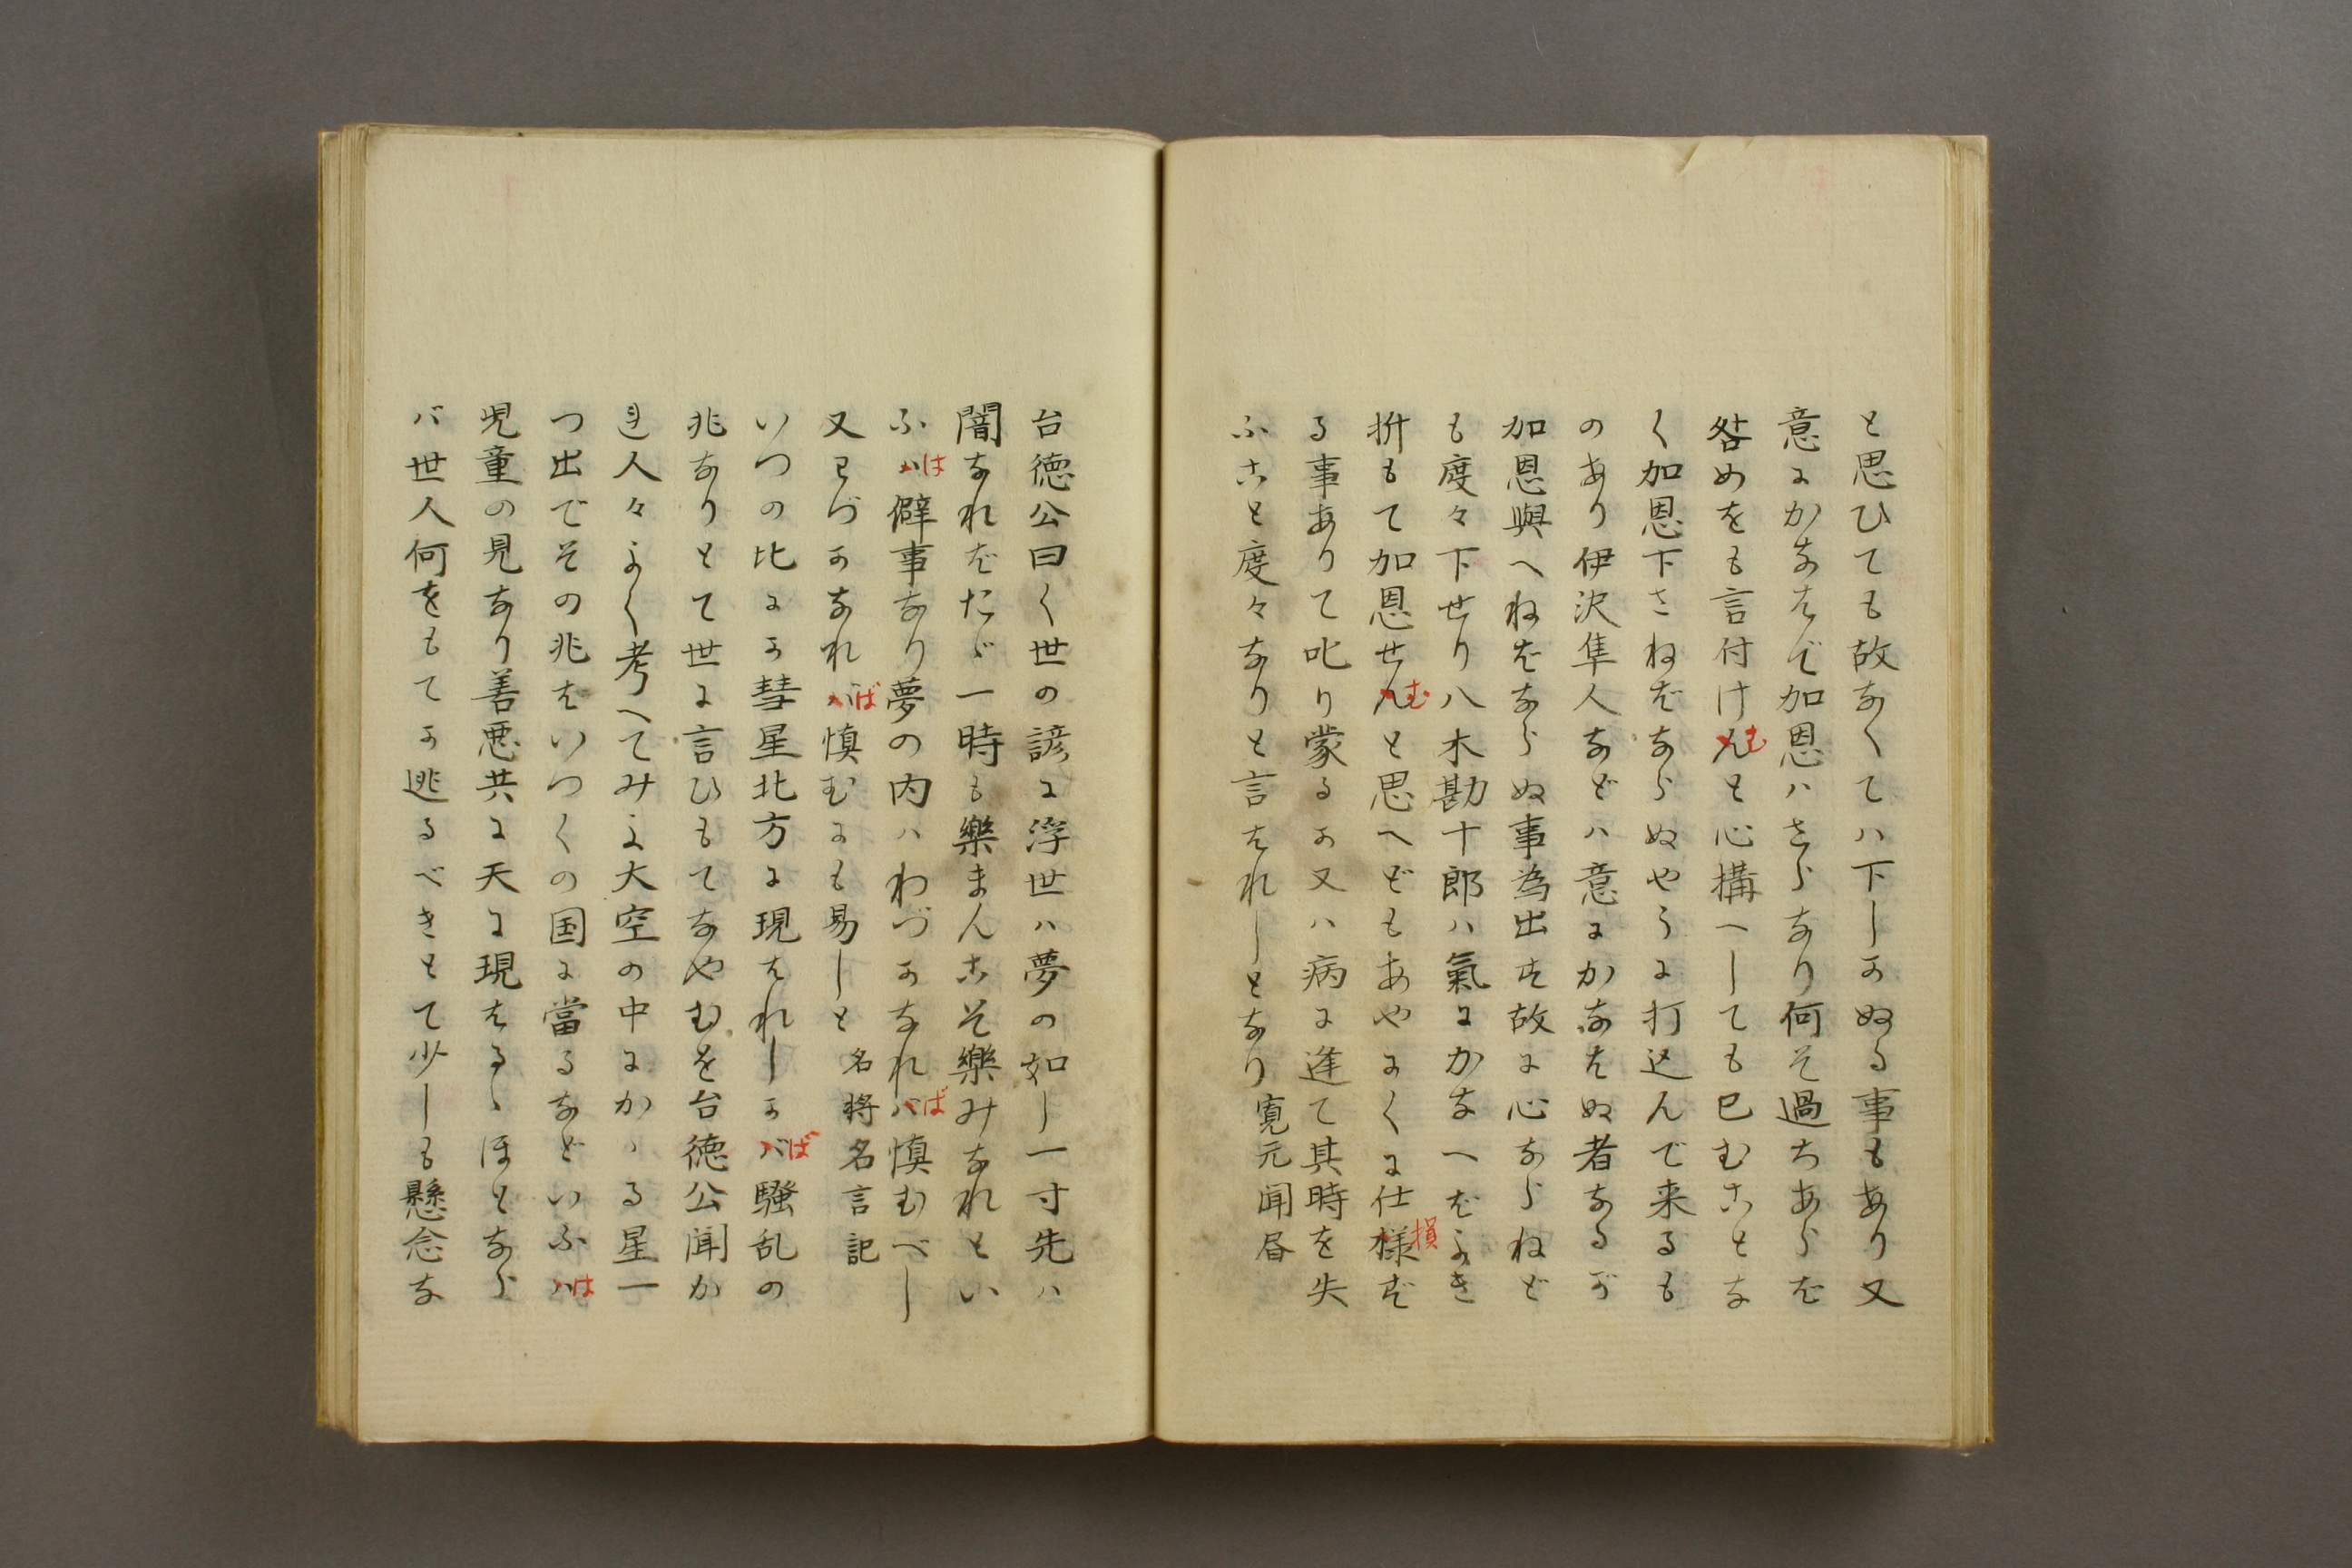 と思ひても故なくてハ下しかぬる事もあり又
意にかなはで加恩ハさらなり何そ過ちあらは
咎めをも言付けんむと心構へしても已むことな
く加恩下さねばならぬやうに打込んで来るも
のあり伊沢隼人などハ意にかなはぬ者なるが
加恩與へねばならぬ事為出す故に心ならねど
も度々下せり八木勘十郎ハ氣にかなへばよき
折もて加恩せんむと思へどもあやにくに仕様損ぜ
る事ありて叱り蒙るか又ハ病に逢て其時を失
ふこと度々なりと言はれしとなり 寛元聞昏
台徳公曰く世の諺に浮世ハ夢の如し一寸先ハ
闇なればたゞ一時も樂まんこそ樂みなれとい
ふハは僻事なり夢の内ハわづかなればば慎むべし
又わづかなればば慎むにも易しと 名将名言記
いつの比にか彗星北方に現はれしかバば騒乱の
兆なりとて世に言ひもてなやむを台徳公聞か
れ人々よく考へてみよ大空の中にかゝる星一
つ出でその兆をいつくの国に當るなどいふハは
児童の見なり善悪共に天に現はるゝほとなら
バ世人何をもてか逃るべきとて少しも懸念な